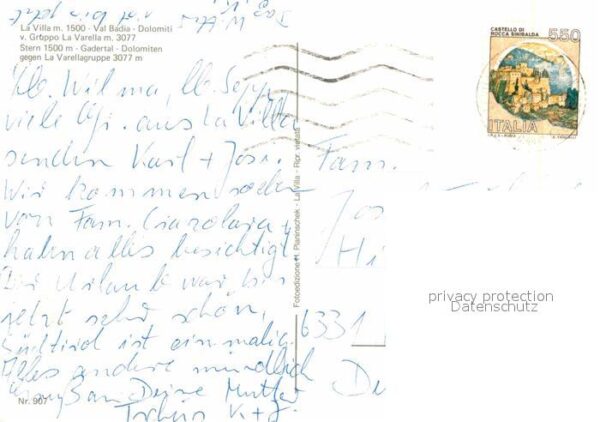 La Villa m. 1500 - Val Badia - Dolomiti
v. Gruppo La Varella m. 3077
Stern 1500 m - Gadertal - Dolomiten
gegen La Varellagruppe 3077 m
Lb. Wilma, lb. Sepp,
viele Gr. aus La Villa
senden Karl + Jos.
Wir kommen soeben
von Fam.
haben alles besichtigt
Der Urlaub war bis
jetzt sehr schön,
Südtirol ist einmalig
Alles andere mündlich
Gruß an Deine Mutter
Tschüs K + J.
Nr. 907
Fotoedizione H. Planinschek - La Villa - Ripr. vietata
CASTELLO DI
ROCCA SINIBALDA
550
ITALIA
Fam.
Jos
Hi
6331
De
privacy protection
Datenschutz